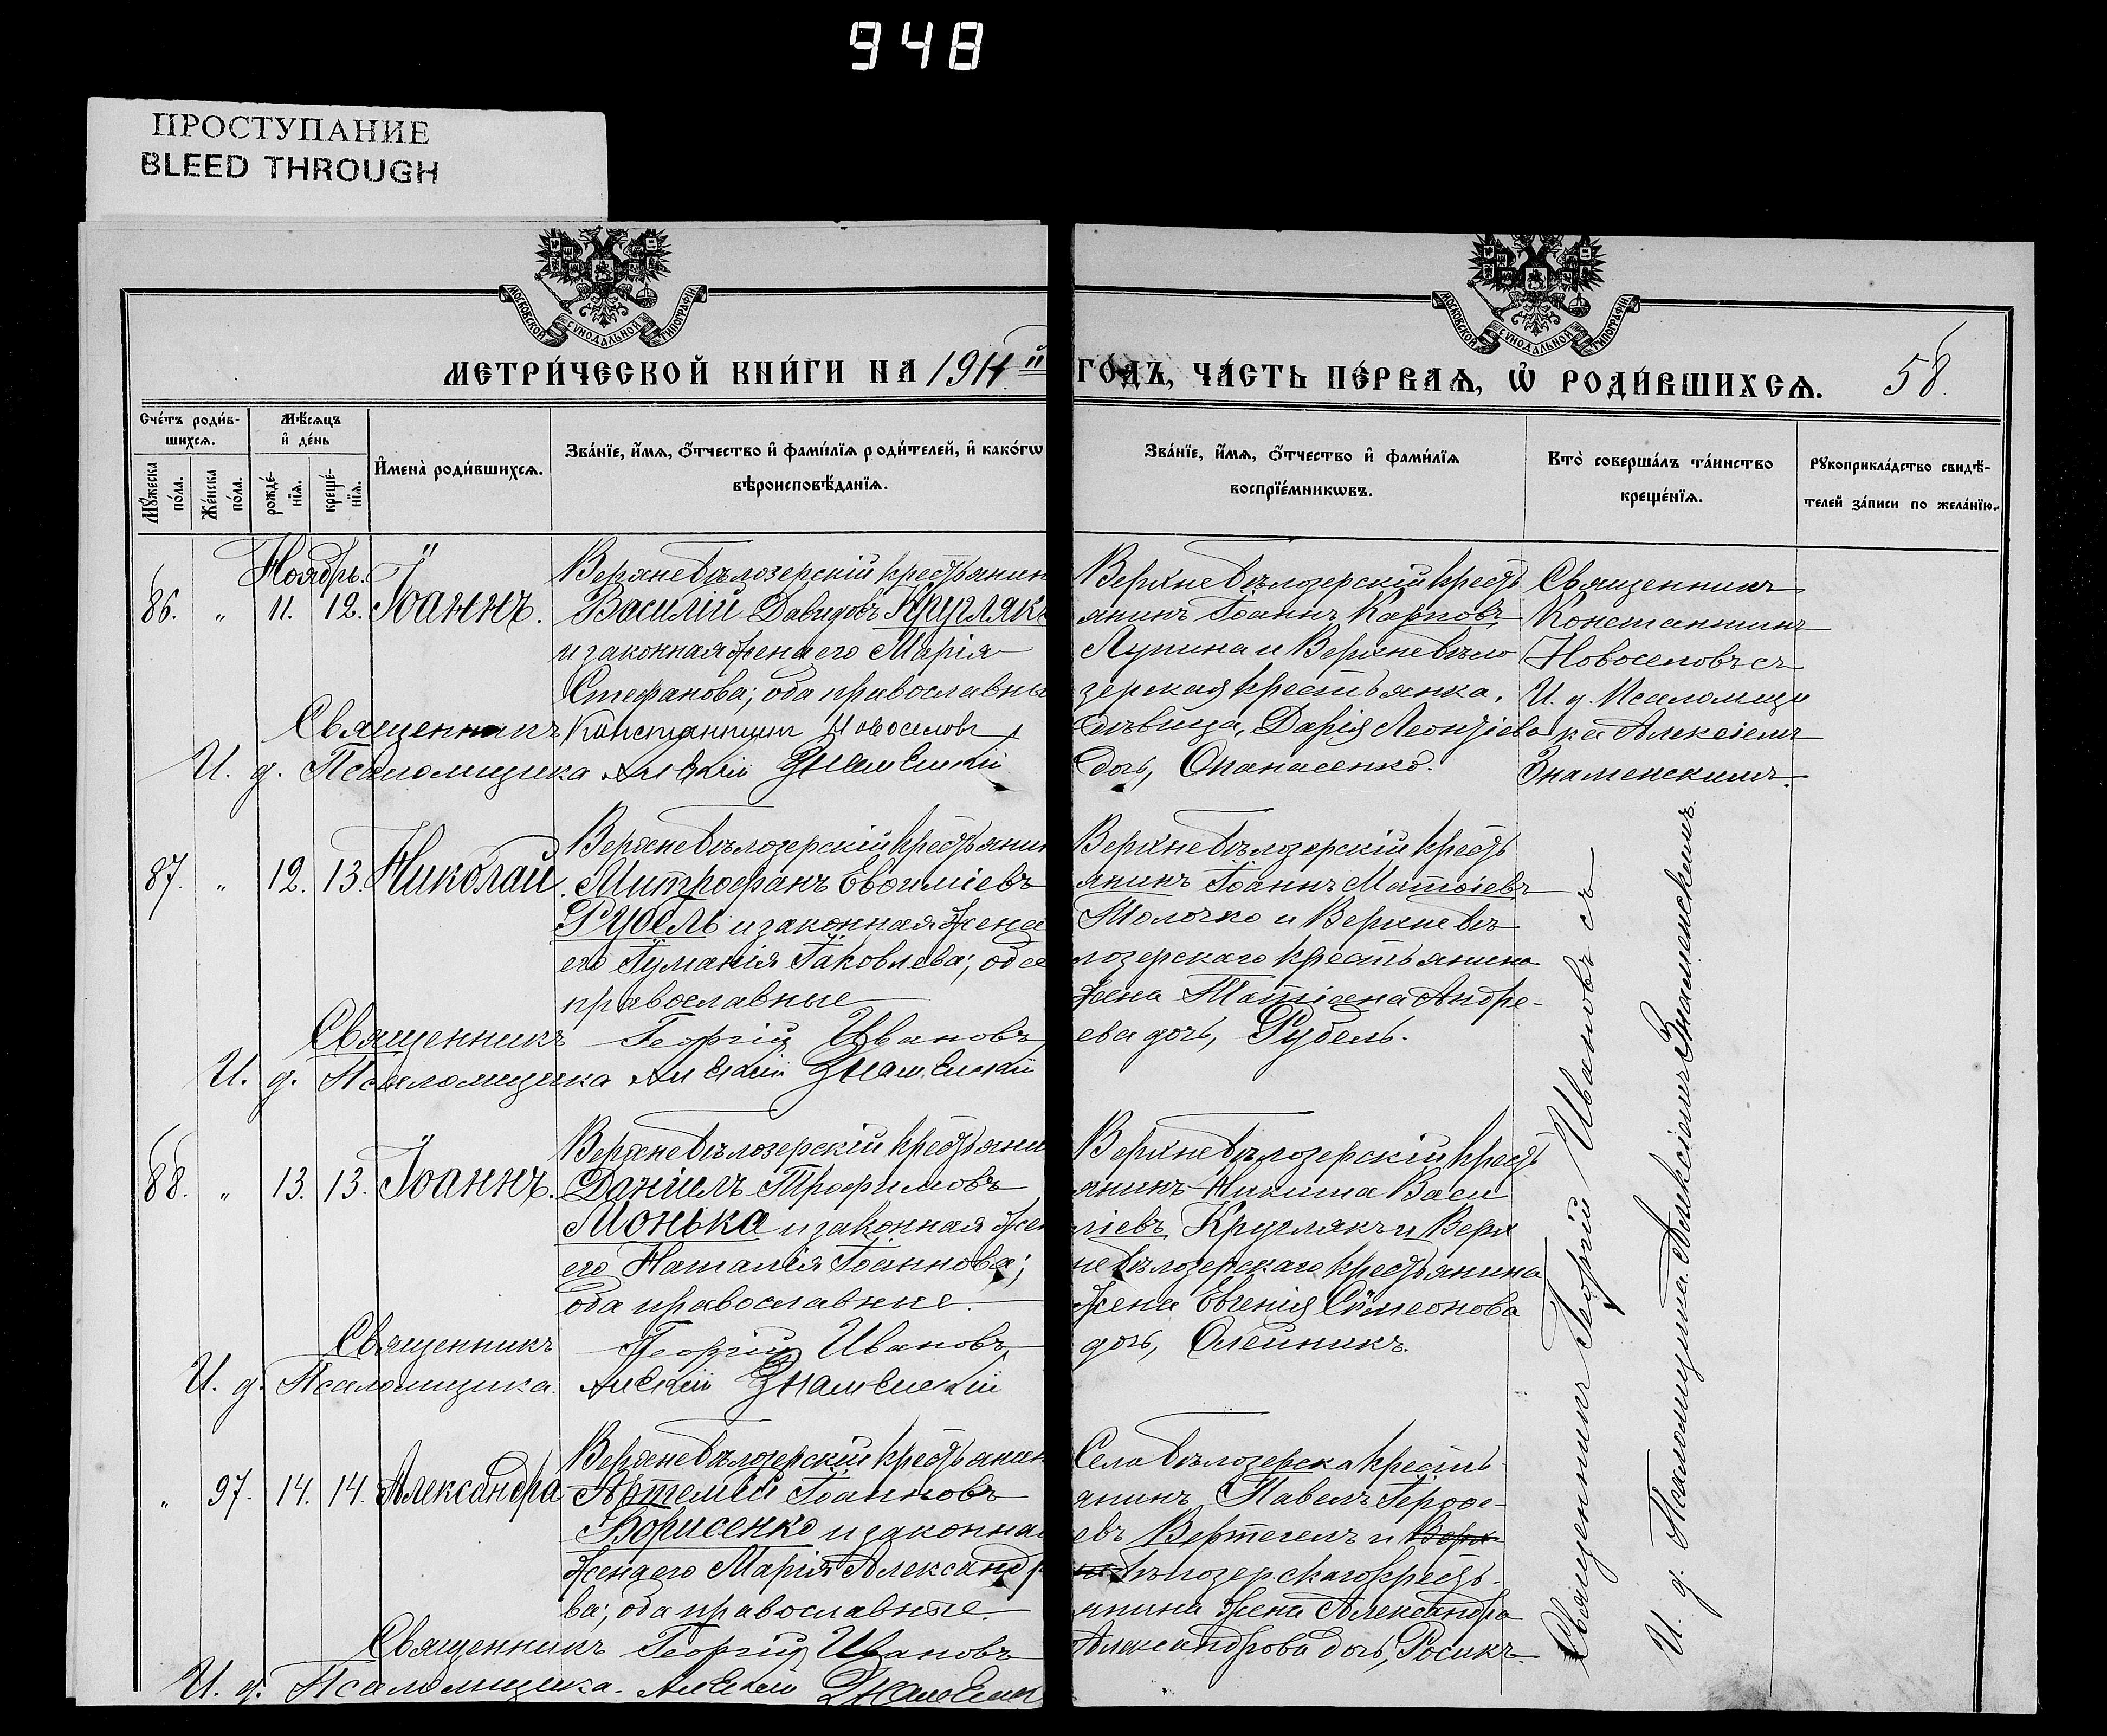 948
ПРОСТУПАНИЕ
BLEED THROUGH
МОСКОВСКОЙ СѴНОДАЛЬНОЙ ТИПОГРАФІИ
МОСКОВСКОЙ СѴНОДАЛЬНОЙ ТИПОГРАФІИ
МЕТРИ́ЧЕСКОЙ КНИ́ГИ НА 1911 й
ГО́ДЪ, ЧА́СТЬ ПЕ́РВАѦ, Ѡ҆ РОДИ́ВШИХСѦ. 58.
Сче́тъ роди́в-
шихсѧ.
Мѣ́сѧцъ
и҆ де́нь
Мꙋ́жеска по́ла.
Же́нска по́ла.
рожде́-
нїѧ.
креще́-
нїѧ.
И҆мена̀ роди́вшихсѧ.
Зва́нїе, и҆́мѧ, ѻ҆́тчество и҆ фами́лїѧ роди́телей, и҆ како́гѡ
вѣроисповѣ́данїѧ.
Зва́нїе, и҆́мѧ, ѻ҆́тчество и҆ фами́лїѧ
воспрїе́мникѡвъ.
Кто̀ соверша́лъ та́инство
креще́нїѧ.
Рꙋкоприкла́дство свидѣ́-
телей за́писи по жела́нїю.
Ноябрь.
86. " 11. 12. Іоаннъ.
Верхнебѣлозерскій крестьянин
Василій Давидовъ Круглякъ
и законная жена его Марія
Стефанова; оба православны
Священникъ Константин Новоселовъ
И. д. Псаломщика Алексій Знаменскій
Верхнебѣлозерскій кресть
янинъ Іоаннъ Карповъ
Лупина и Верхнебѣло
зерская крестьянка,
дѣвица, Дарія Леонтіева
дочь, Опанасенко.
Священникъ
Константинъ
Новоселовъ съ
И. д. Псаломщи
ка Алексіемъ
Знаменскимъ.
87. " 12. 13. Николай.
Верхнебѣлозерскій крестьянин
Митрофанъ Евфиміевъ
Рубель и законная жена
его Іуманія Іаковлева; оба
православные
Священникъ Георгій Ивановъ
И. д. Псаломщика Алексій Знаменскій
Верхнебѣлозерскій кресть
янинъ Іоаннъ Матфіевъ
Толочко и Верхнебѣ
лозерскаго крестьянина
жена Татіана Андре-
ева дочь, Рубель.
88. " 13. 13. Іоаннъ.
Верхнебѣлозерскій крестьяни
Даніилъ Трофимовъ
Монька и законная жен
его Наталія Іоаннова;
оба православные.
Священникъ Георгій Ивановъ
И. д. Псаломщика Алексій Знаменскій
Верхнебѣлозерскій кресть
янинъ Никита Васи
ліевъ Круглякъ и Верх
небѣлозерскаго крестьянина
жена Евгенія Сѵмеонова
дочь, Олейникъ.
" 97. 14. 14. Александра
Верхнебѣлозерскій крестьянин
Артемій Іоанновъ
Борисенко и законная
жена его Марія Александро
ва; оба православные.
Священникъ Георгій Ивановъ
И. д. Псаломщика Алексій Знаменск
Села Бѣлозерска кресть-
янинъ Павелъ Іерофе-
евъ Вертегелъ и Верх-
не Бѣлозерскаго кресть-
янина жена Александра
Александрова дочь, Росикъ.
Священникъ Георгій Ивановъ съ
И. д. Псаломщика Алексіемъ Знаменскимъ.